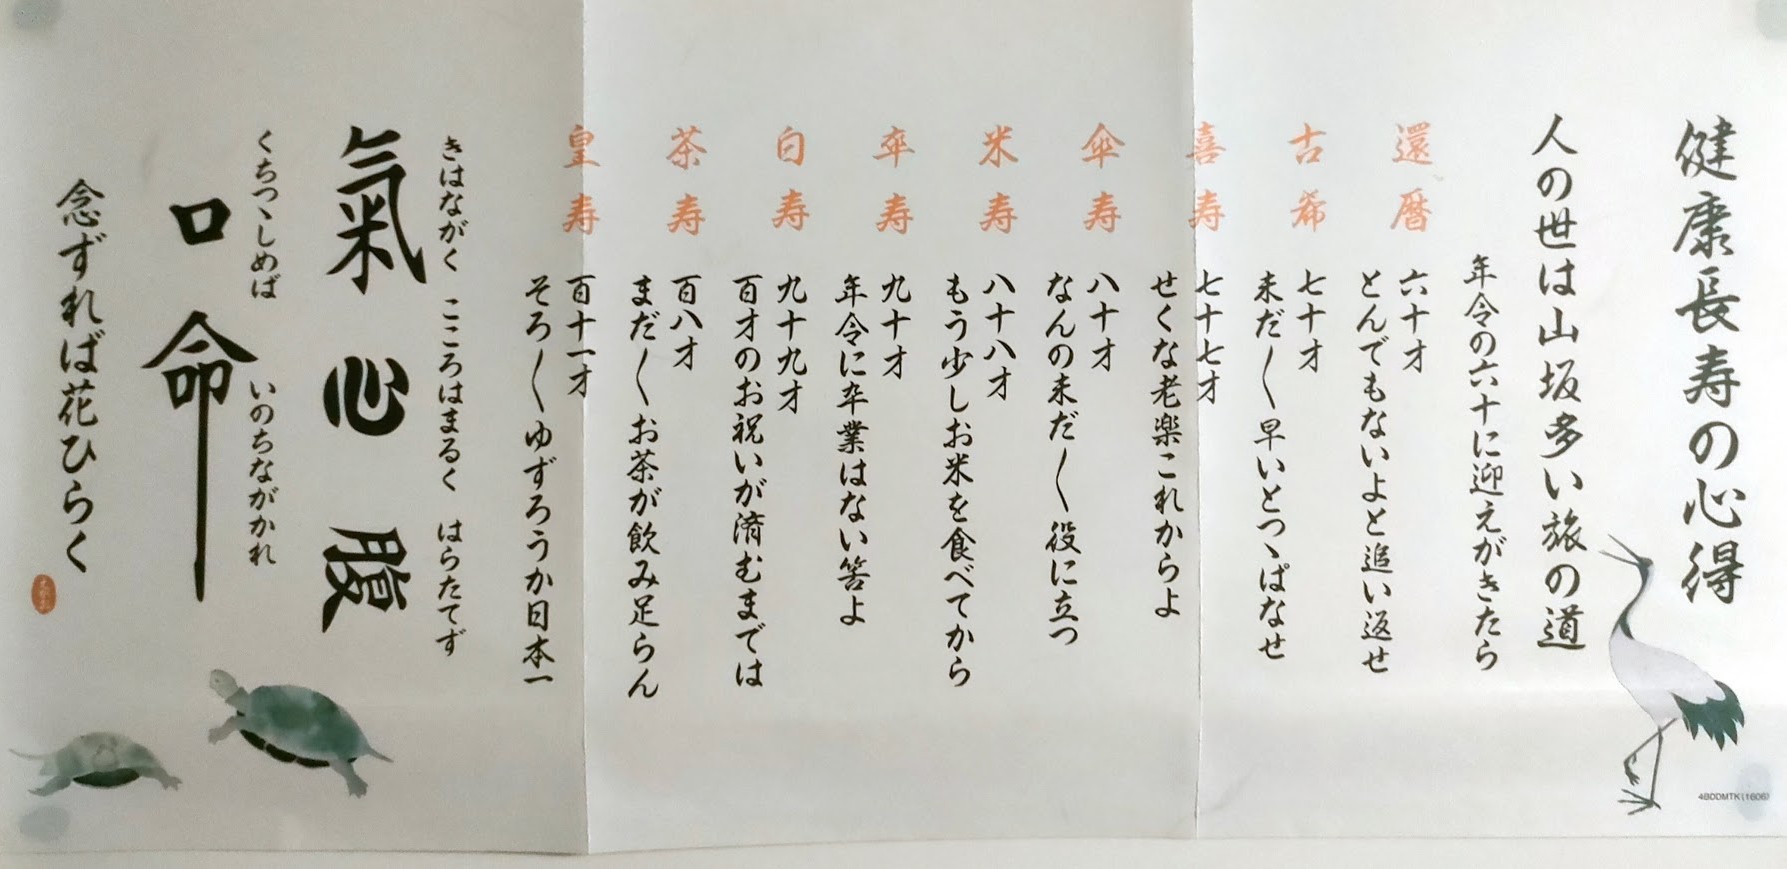 健康長寿の心得
人の世は山坂多い旅の道
年令の六十に迎えがきたら
還暦
六十才
とんでもないよと追い返せ
古希
七十才
未だ〳〵早いとつゝぱなせ
喜寿
七十七才
せくな老楽これからよ
傘寿
八十才
なんの未だ〳〵役に立つ
米寿
八十八才
もう少しお米を食べてから
卒寿
九十才
年令に卒業はない筈よ
白寿
九十九才
百才のお祝いが済むまでは
茶寿
百八才
まだ〳〵お茶が飲み足らん
皇寿
百十一才
そろ〳〵ゆずろうか日本一
きはながく こころはまるく はらたてず
氣 心 腹
くちつゝしめば いのちながかれ
口 命
念ずれば花ひらく
4BDDMTK(1606)